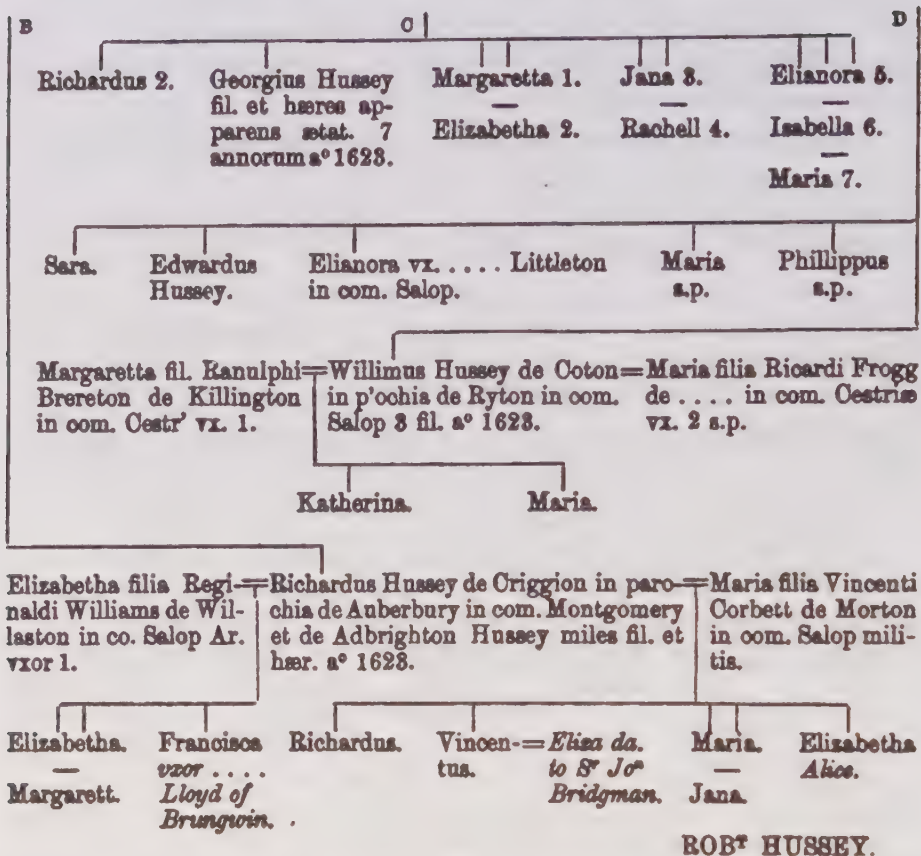 B
C
D
Richardus 2.
Georgius Hussey
fil. et hæres ap-
parens ætat. 7
annorum aº 1623.
Margaretta 1.
—
Elizabetha 2.
Jana 3.
—
Rachell 4.
Elianora 5.
—
Isabella 6.
—
Maria 7.
Sara.
Edwardus
Hussey.
Elianora vx. . . . . . Littleton
in com. Salop.
Maria
s.p.
Phillippus
s.p.
Margaretta fil. Ranulphi
Brereton de Killington
in com. Cestr' vx. 1.
=Willimus Hussey de Coton=
in p'ochia de Ryton in com.
Salop 3 fil. aº 1623.
Maria filia Ricardi Frogg
de . . . . in com. Cestriæ
vx. 2 s.p.
Katherina.
Maria.
Elizabetha filia Regi-
naldi Williams de Wil-
laston in co. Salop Ar.
vxor 1.
=Richardus Hussey de Criggion in paro-=
chia de Auberbury in com. Montgomery
et de Adbrighton Hussey miles fil. et
hær. aº 1623.
Maria filia Vincenti
Corbett de Morton
in com. Salop mili-
tis.
Elizabetha.
—
Margarett.
Francisca
vxor . . . .
Lloyd of
Brungwin.
Richardus.
Vincen-=
tus.
Eliza da.
to Sr Joⁿ
Bridgman.
Maria.
—
Jana.
Elizabetha
Alice.
ROBᵀ HUSSEY.